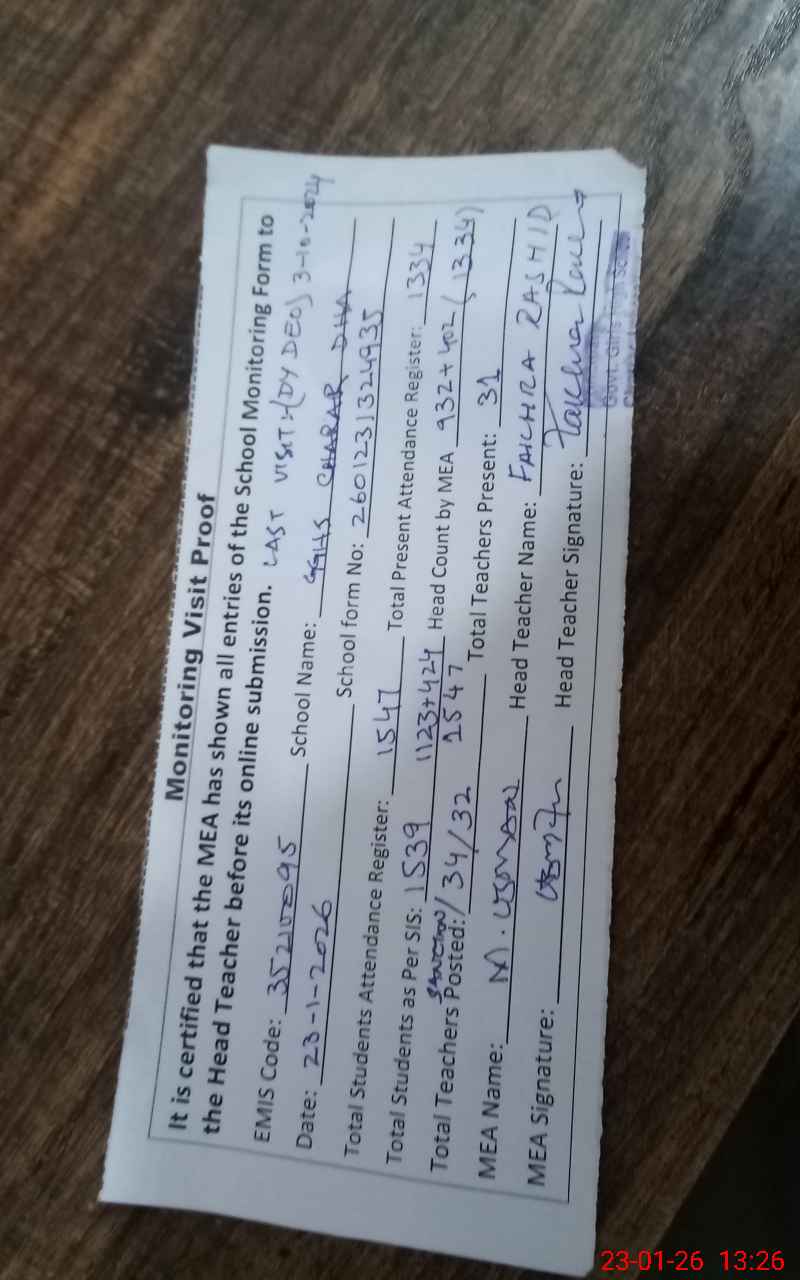 Monitoring Visit Proof
It is certified that the MEA has shown all entries of the School Monitoring Form to
the Head Teacher before its online submission. LAST VISIT:-(DY DEO) 3-10-2024
EMIS Code: 35210095 School Name: GGHS CHARAR DHA
Date: 23-1-2026 School form No: 260123131324935
Total Students Attendance Register: 1547 Total Present Attendance Register: 1334
Total Students as Per SIS: 1539 1123+424 1547 Head Count by MEA 932+402 (1334)
Total Teachers SANCTION/ Posted: 34/32 Total Teachers Present: 31
MEA Name: M. USMAN Head Teacher Name: FAKHRA RASHID
MEA Signature: Head Teacher Signature:
Govt. Girls High School
23-01-26 13:26